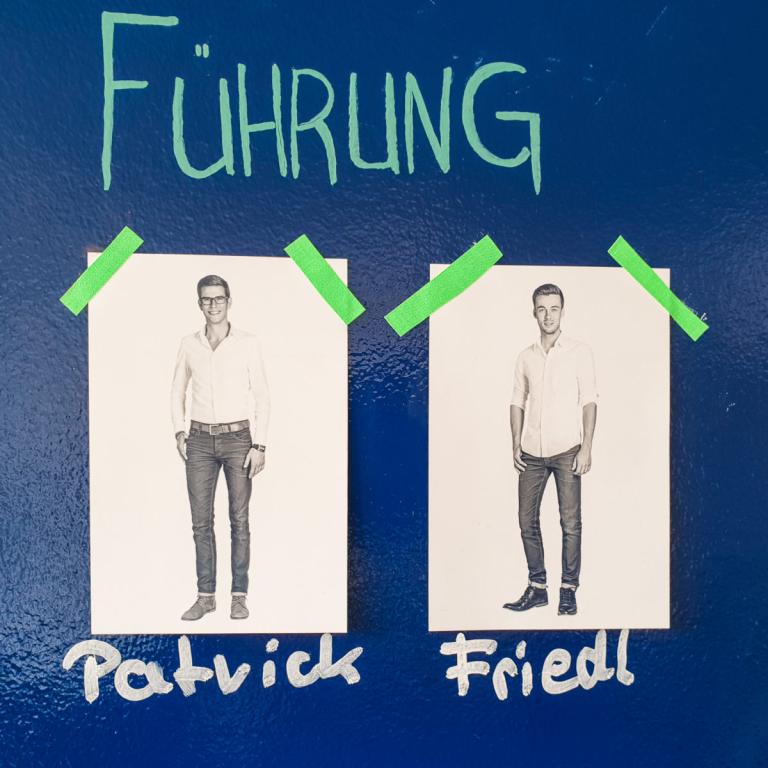 FÜHRUNG
Patrick Friedl